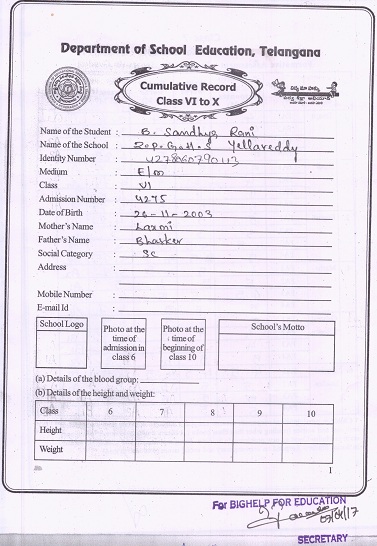 Department of School Education, Telangana
Cumulative Record
Class VI to X
Name of the Student : B. Sandhya Rani
Name of the School : Z.p.Govt.H.S Yellareddy
Identity Number :
Medium : E/m
Class : VI
Admission Number : 4275
Date of Birth : 20-11-2003
Mother's Name : Laxmi
Father's Name : Bhasker
Social Category : Sc
Address :
Mobile Number :
E-mail Id :
School Logo
Photo at the time of admission in class 6
Photo at the time of beginning of class 10
School's Motto
(a) Details of the blood group:
(b) Details of the height and weight:
Class 6 7 8 9 10
Height
Weight
1
For BIGHELP FOR EDUCATION
SECRETARY